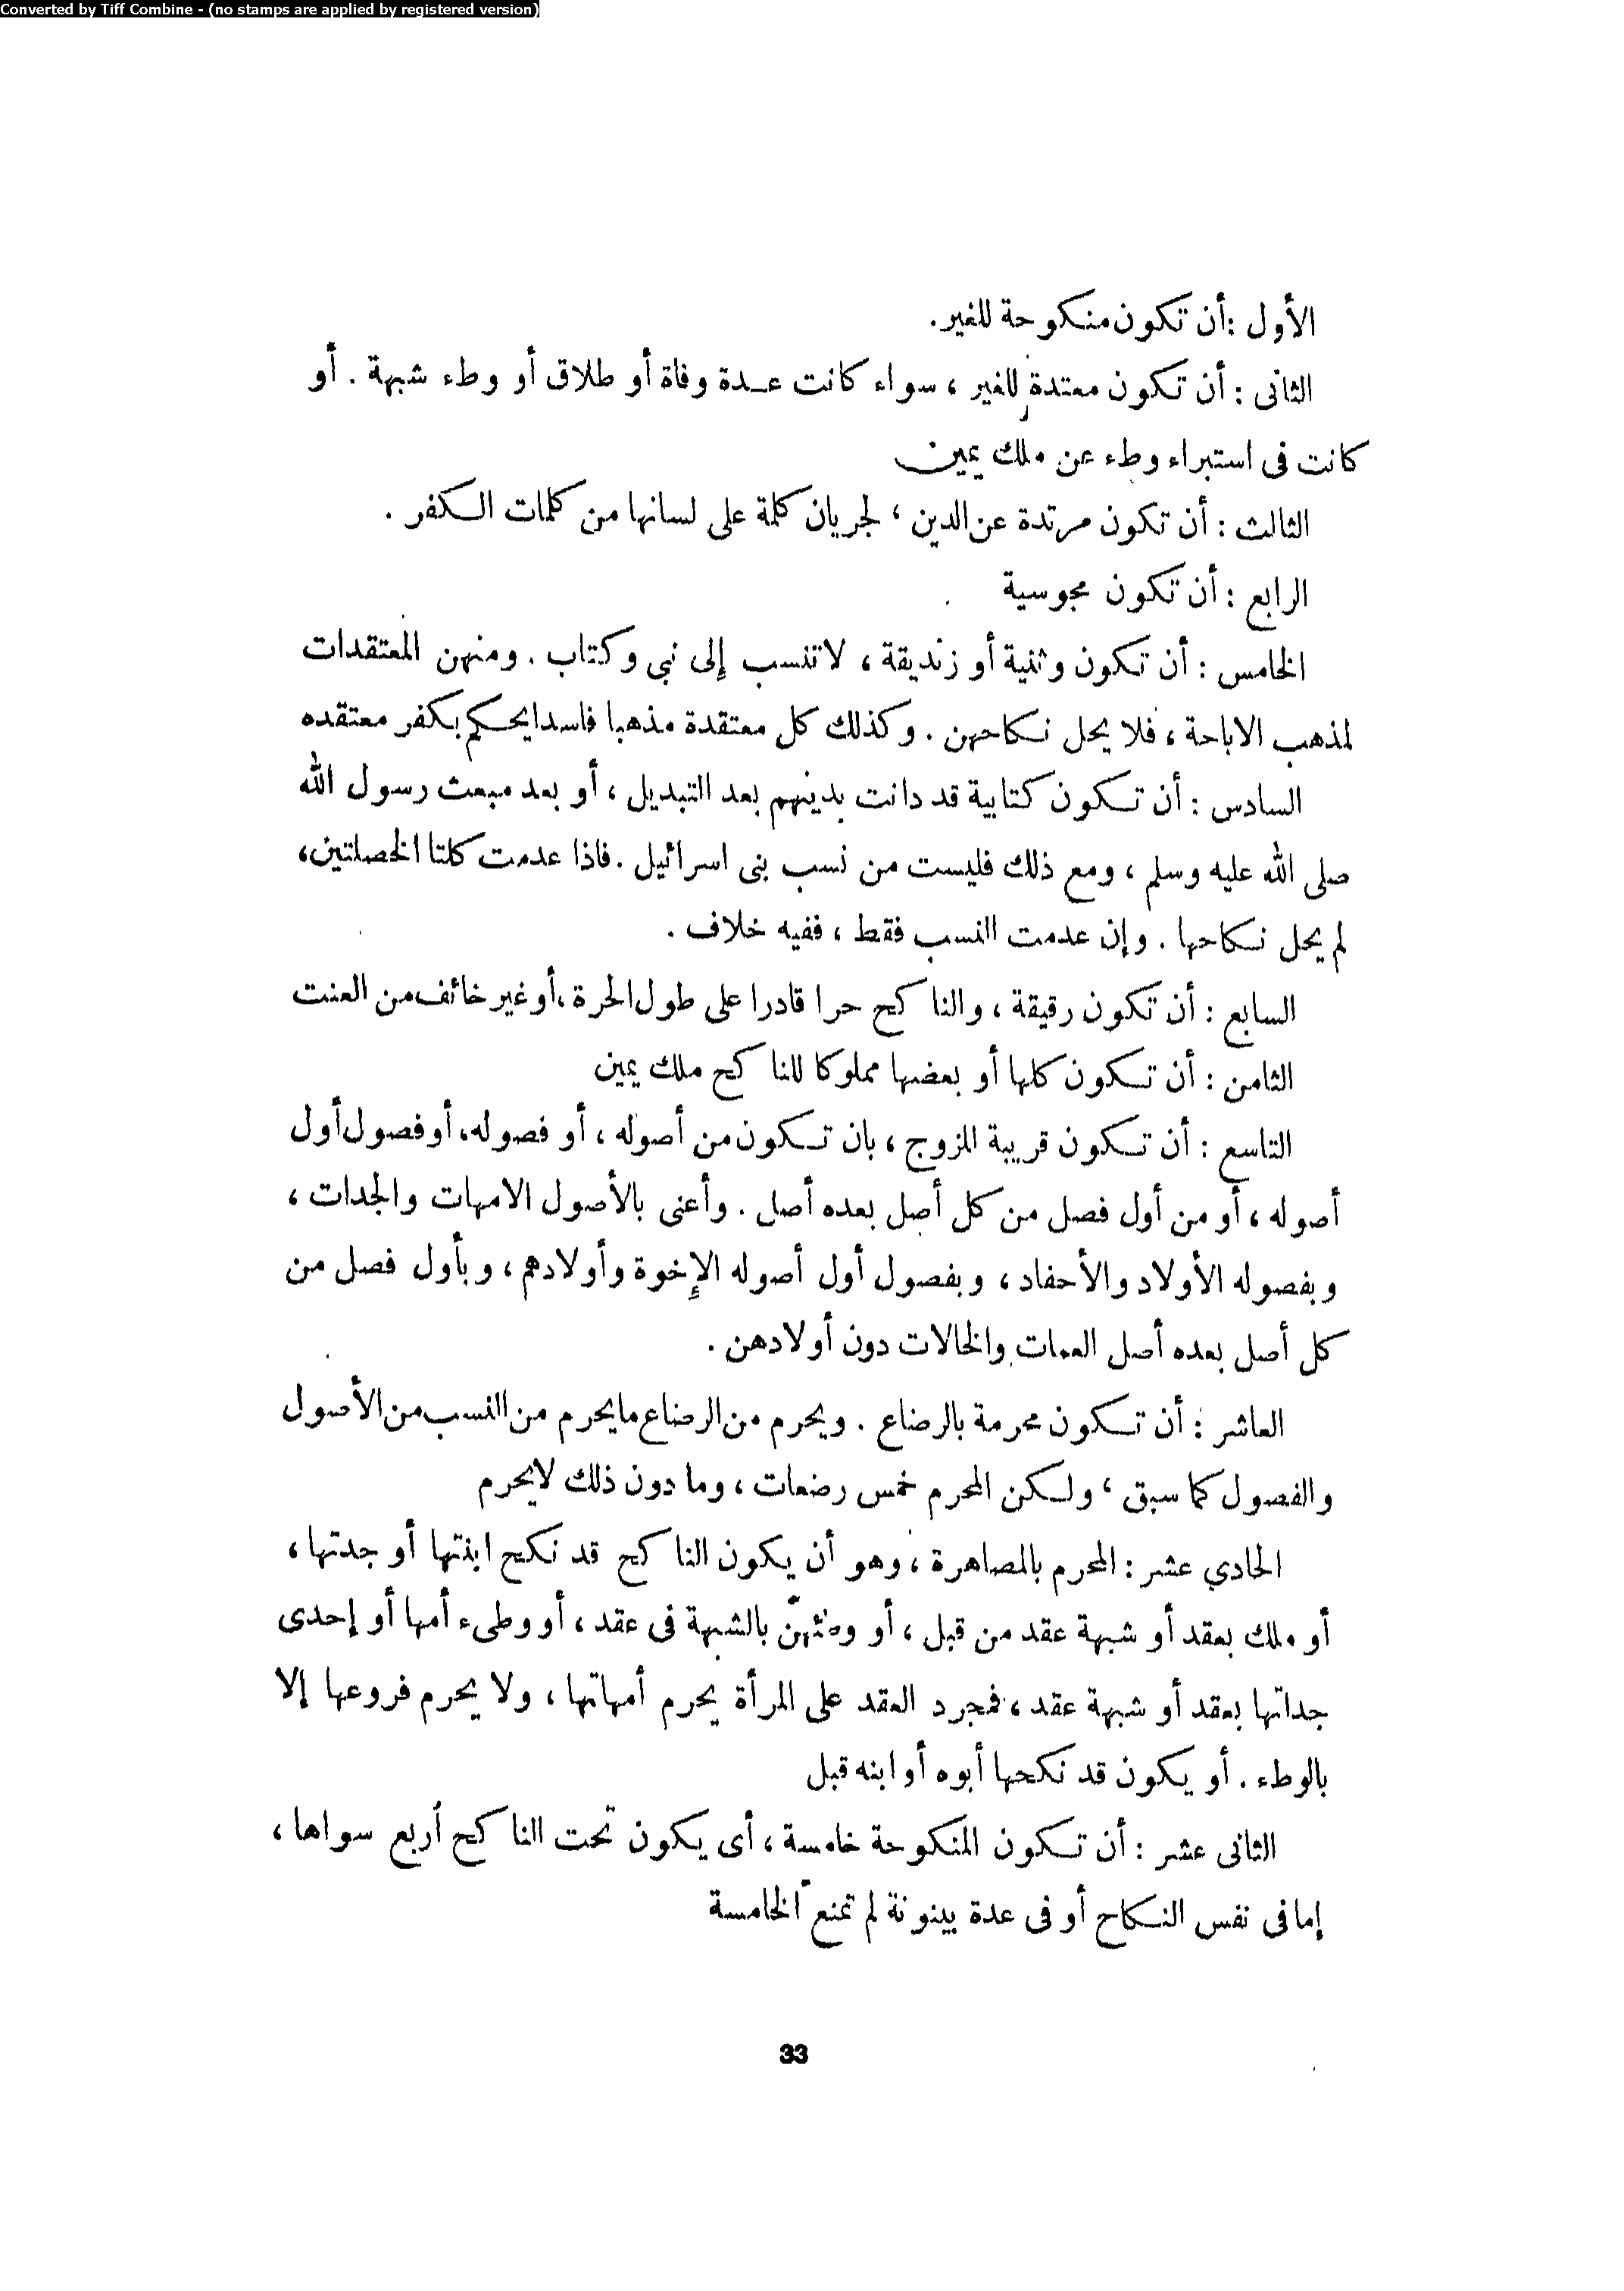 Converted by Tiff Combine - (no stamps are applied by registered version)
الأول : أن تكون منكوحة للغير .
الثانى : أن تكون معتدة للغير ، سواء كانت عدة وفاة أو طلاق أو وطء شبهة . أو
كانت فى استبراء وطء عن ملك يمين
الثالث : أن تكون مرتدة عن الدين ، لجريان كلمة على لسانها من كلمات الكفر .
الرابع : أن تكون مجوسية
الخامس : أن تكون وثنية أو زنديقة ، لا تنسب إلى نبى وكتاب . ومنهن المعتقدات
لمذهب الاباحة ، فلا يحل نكاحهن . وكذلك كل معتقدة مذهبا فاسدا يحكم بكفر معتقده
السادس : أن تكون كتابية قد دانت بدينهم بعد التبديل ، أو بعد مبعث رسول الله
صلى الله عليه وسلم ، ومع ذلك فليست من نسب بنى اسرائيل . فاذا عدمت كلتا الخصلتين ،
لم يحل نكاحها . وإن عدمت النسب فقط ، ففيه خلاف .
السابع : أن تكون رقيقة ، والناكح حرا قادرا على طول الحرة ، أو غير خائف من العنت
الثامن : أن تكون كلها أو بعضها مملوكا للناكح ملك يمين
التاسع : أن تكون قريبة للزوج ، بان تكون من أصوله ، أو فصوله ، أو فصول أول
أصوله ، أو من أول فصل من كل أصل بعده أصل . وأعنى بالأصول الامهات والجدات ،
وبفصوله الأولاد والأحفاد ، وبفصول أول أصوله الإخوة وأولادهم ، وبأول فصل من
كل أصل بعده أصل العمات والخالات دون أولادهن .
العاشر : أن تكون محرمة بالرضاع . ويحرم من الرضاع ما يحرم من النسب من الأصول
والفصول كما سبق ، ولكن المحرم خمس رضعات ، وما دون ذلك لا يحرم
الحادي عشر : المحرم بالمصاهرة ، وهو أن يكون الناكح قد نكح ابنتها أو جدتها ،
أو ملك بعقد أو شبهة عقد من قبل ، أو وطئهنّ بالشبهة فى عقد ، أو وطىء أمها أو إحدى
جداتها بعقد أو شبهة عقد ، فمجرد العقد على المرأة يحرم أمهاتها ، ولا يحرم فروعها إلا
بالوطء . أو يكون قد نكحها أبوه أو ابنه قبل
الثانى عشر : أن تكون المنكوحة خامسة ، أى يكون تحت الناكح أربع سواها ،
إما فى نفس النكاح أو فى عدة بينونة لم تمنع الخامسة
33